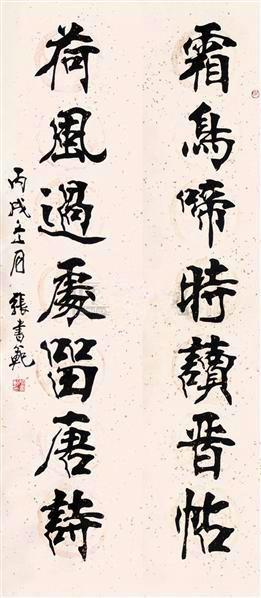 霜鳥啼時讀晋帖
荷風過處留唐詩
丙戌月 張書範